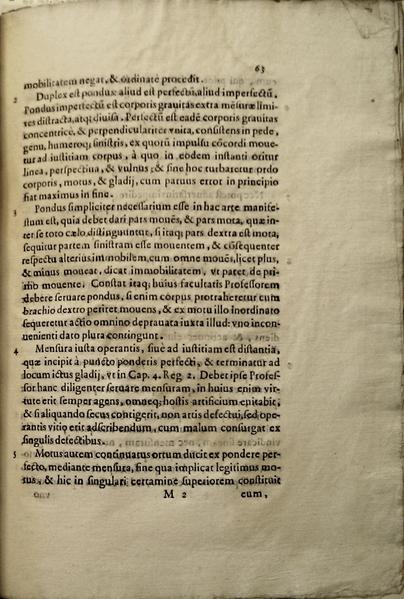 63
mobilitatem negat, & ordinatè procedit.
2 Duplex est pondus: aliud est perfectũ, aliud imperfectũ.
Pondus imperfectũ est corporis grauitas extra mẽsuræ limi-
tes distracta, atq; diuisa. Perfectũ est eadẽ corporis grauitas
concentricè, & perpendiculariter vnita, consistens in pede,
genu, humeroq; sinistris, ex quorũ impulsu cõcordi moue-
tur ad iustitiam corpus, à quo in eodem instanti oritur
linea, perspectiua, & vulnus; & sine hoc turbaretur ordo
corporis, motus, & gladij, cum paruus error in principio
fiat maximus in fine.
3 Pondus simpliciter necessarium esse in hac arte manife-
stum est, quia debet dari pars mouẽs, & pars mota, quæ in-
ter se toto cælo distinguuntur, si itaq; pars dextra est mota,
sequitur partem sinistram esse mouentem, & cõsequenter
respectu alterius immobilem, cum omne mouẽs, licet plus,
& minus moueat, dicat immobilitatem, vt patet de pri-
mo mouente. Constat itaq; huius facultatis Professorem
debere seruare pondus, si enim corpus protraheretur cum
brachio dextro periret mouens, & ex motu illo inordinato
sequeretur actio omnino deprauata iuxta illud: vno incon-
uenienti dato plura contingunt.
4 Mensura iusta operantis, siuè ad iustitiam est distantia,
quæ incipit à puncto ponderis perfecti, & terminatur ad
locum ictus gladij, vt in Cap. 4. Reg. 2. Debet ipse Profes-
sor hanc diligenter seruare mensuram, in huius enim vir-
tute erit semper agens, omneq; hostis artificium euitabit,
& si aliquando secus contigerit, non artis defectui, sed ope-
rantis vitio erit adscribendum, cum malum consurgat ex
singulis defectibus.
5 Motus autem continuatus ortum ducit ex pondere per-
fecto, mediante mensura, sine qua implicat legitimus mo-
tus, & hic in singulari certamine superiorem constituit
M 2 eum,